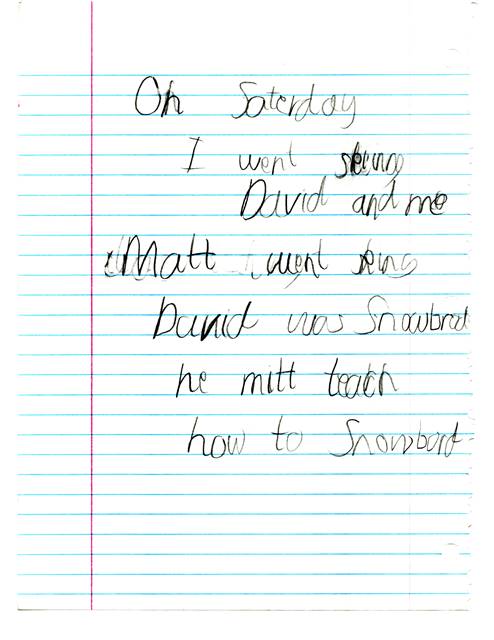 On Saterday
I went skiing
David and me
Matt went sking
David was Snowbrod
he mitt teach
how to Snowbord